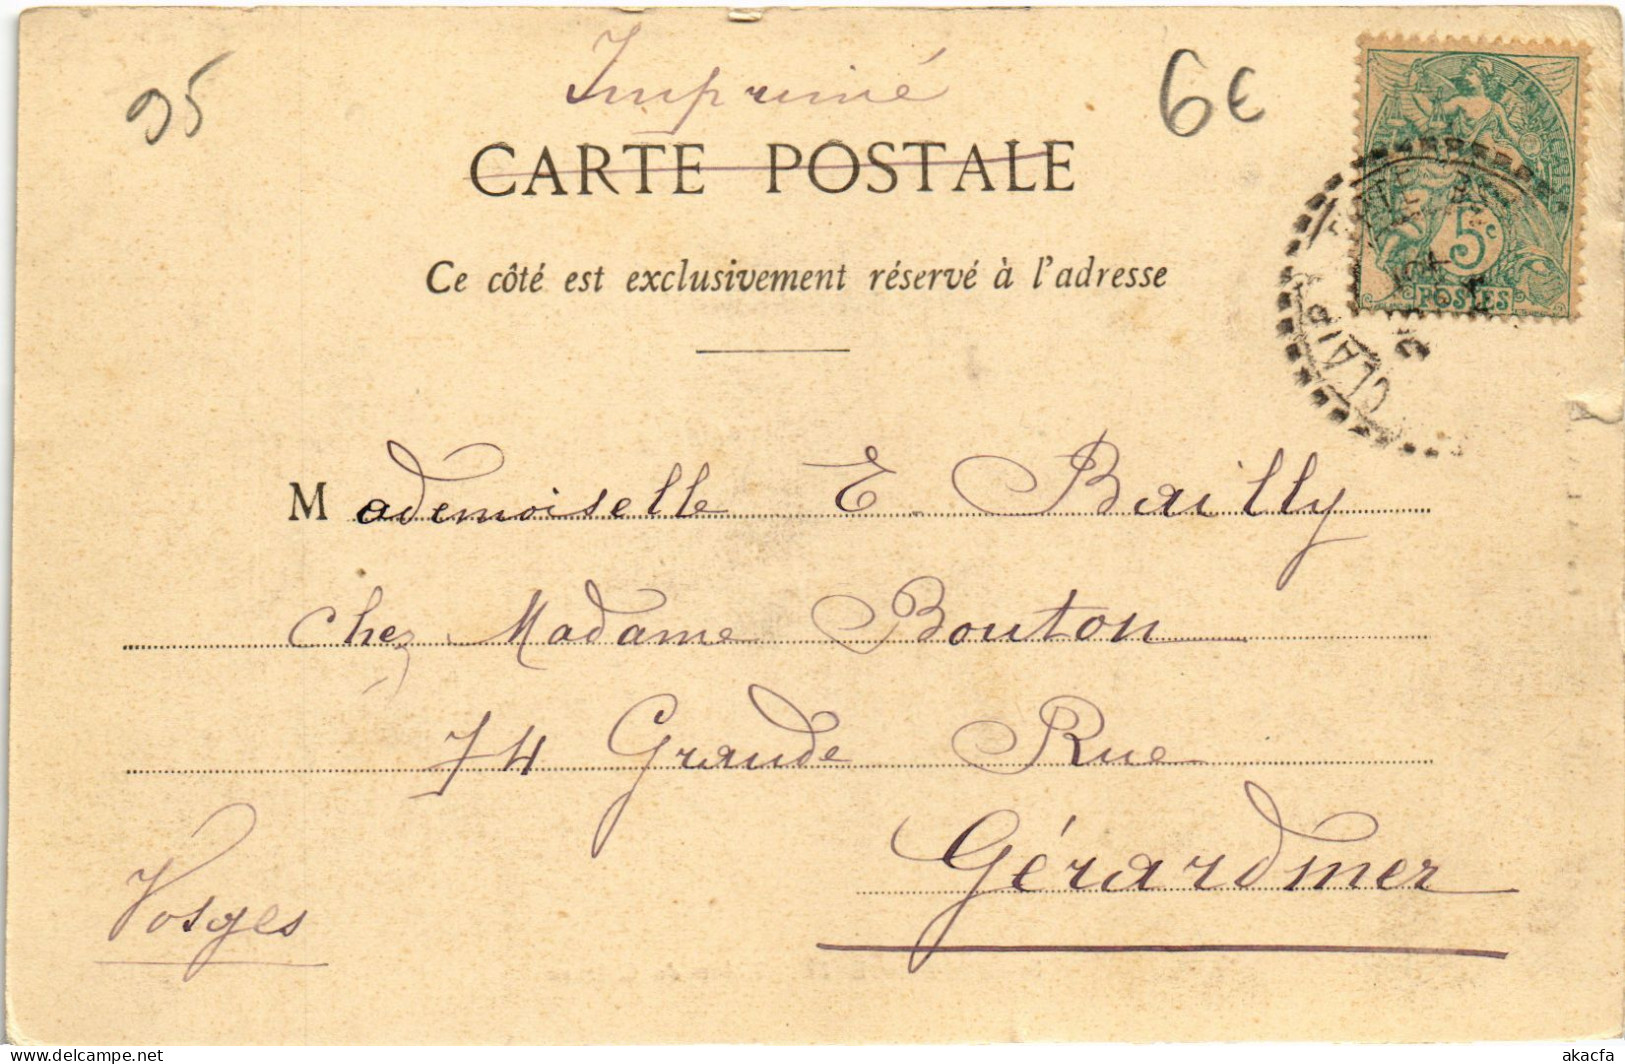 95
Imprimé
6€
CARTE POSTALE
5c
POSTES
Ce côté est exclusivement réservé à l'adresse
Mademoiselle E. Bailly
Chez Madame Bouton
74 Grande Rue
Gérardmer
Vosges
delcampe.net
akacfa